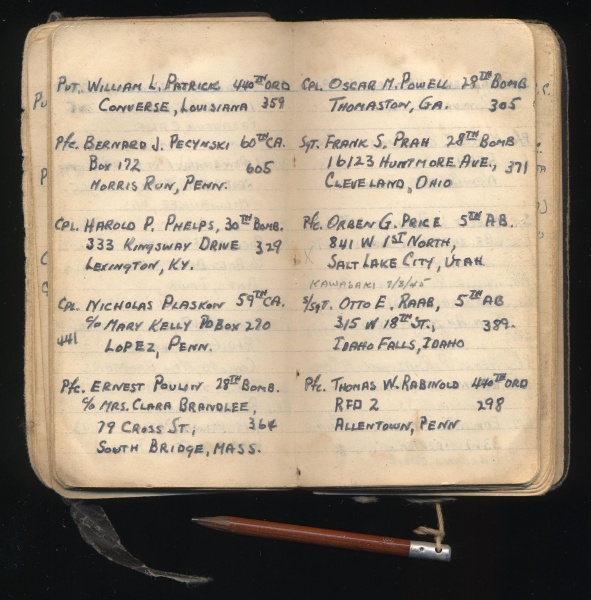 Pvt. William L. Patrick 440TH ORD
Converse, Louisiana 359
Pfc. Bernard J. Pecynski 60TH CA.
Box 172 605
Morris Run, Penn.
Cpl. Harold P. Phelps, 30TH Bomb.
333 Kingsway Drive 329
Lexington, Ky.
Cpl. Nicholas Plaskon 59TH CA.
c/o Mary Kelly PO Box 270
441 Lopez, Penn.
Pfc. Ernest Poulin 28TH Bomb.
c/o Mrs. Clara Brandlee,
79 Cross St., 364
South Bridge, Mass.
Cpl. Oscar M. Powell 28TH Bomb
Thomaston, Ga. 305
Sgt. Frank S. Prah 28TH Bomb
16123 Huntmore Ave., 371
Cleveland, Ohio
Pfc. Orben G. Price 5TH AB.
841 W 1ST North,
Salt Lake City, Utah
Kawasaki
S/Sgt. Otto E. Raab, 5TH AB
315 W 18TH St., 389
Idaho Falls, Idaho
Pfc. Thomas W. Rabinold 440TH ORD
RFD 2 298
Allentown, Penn